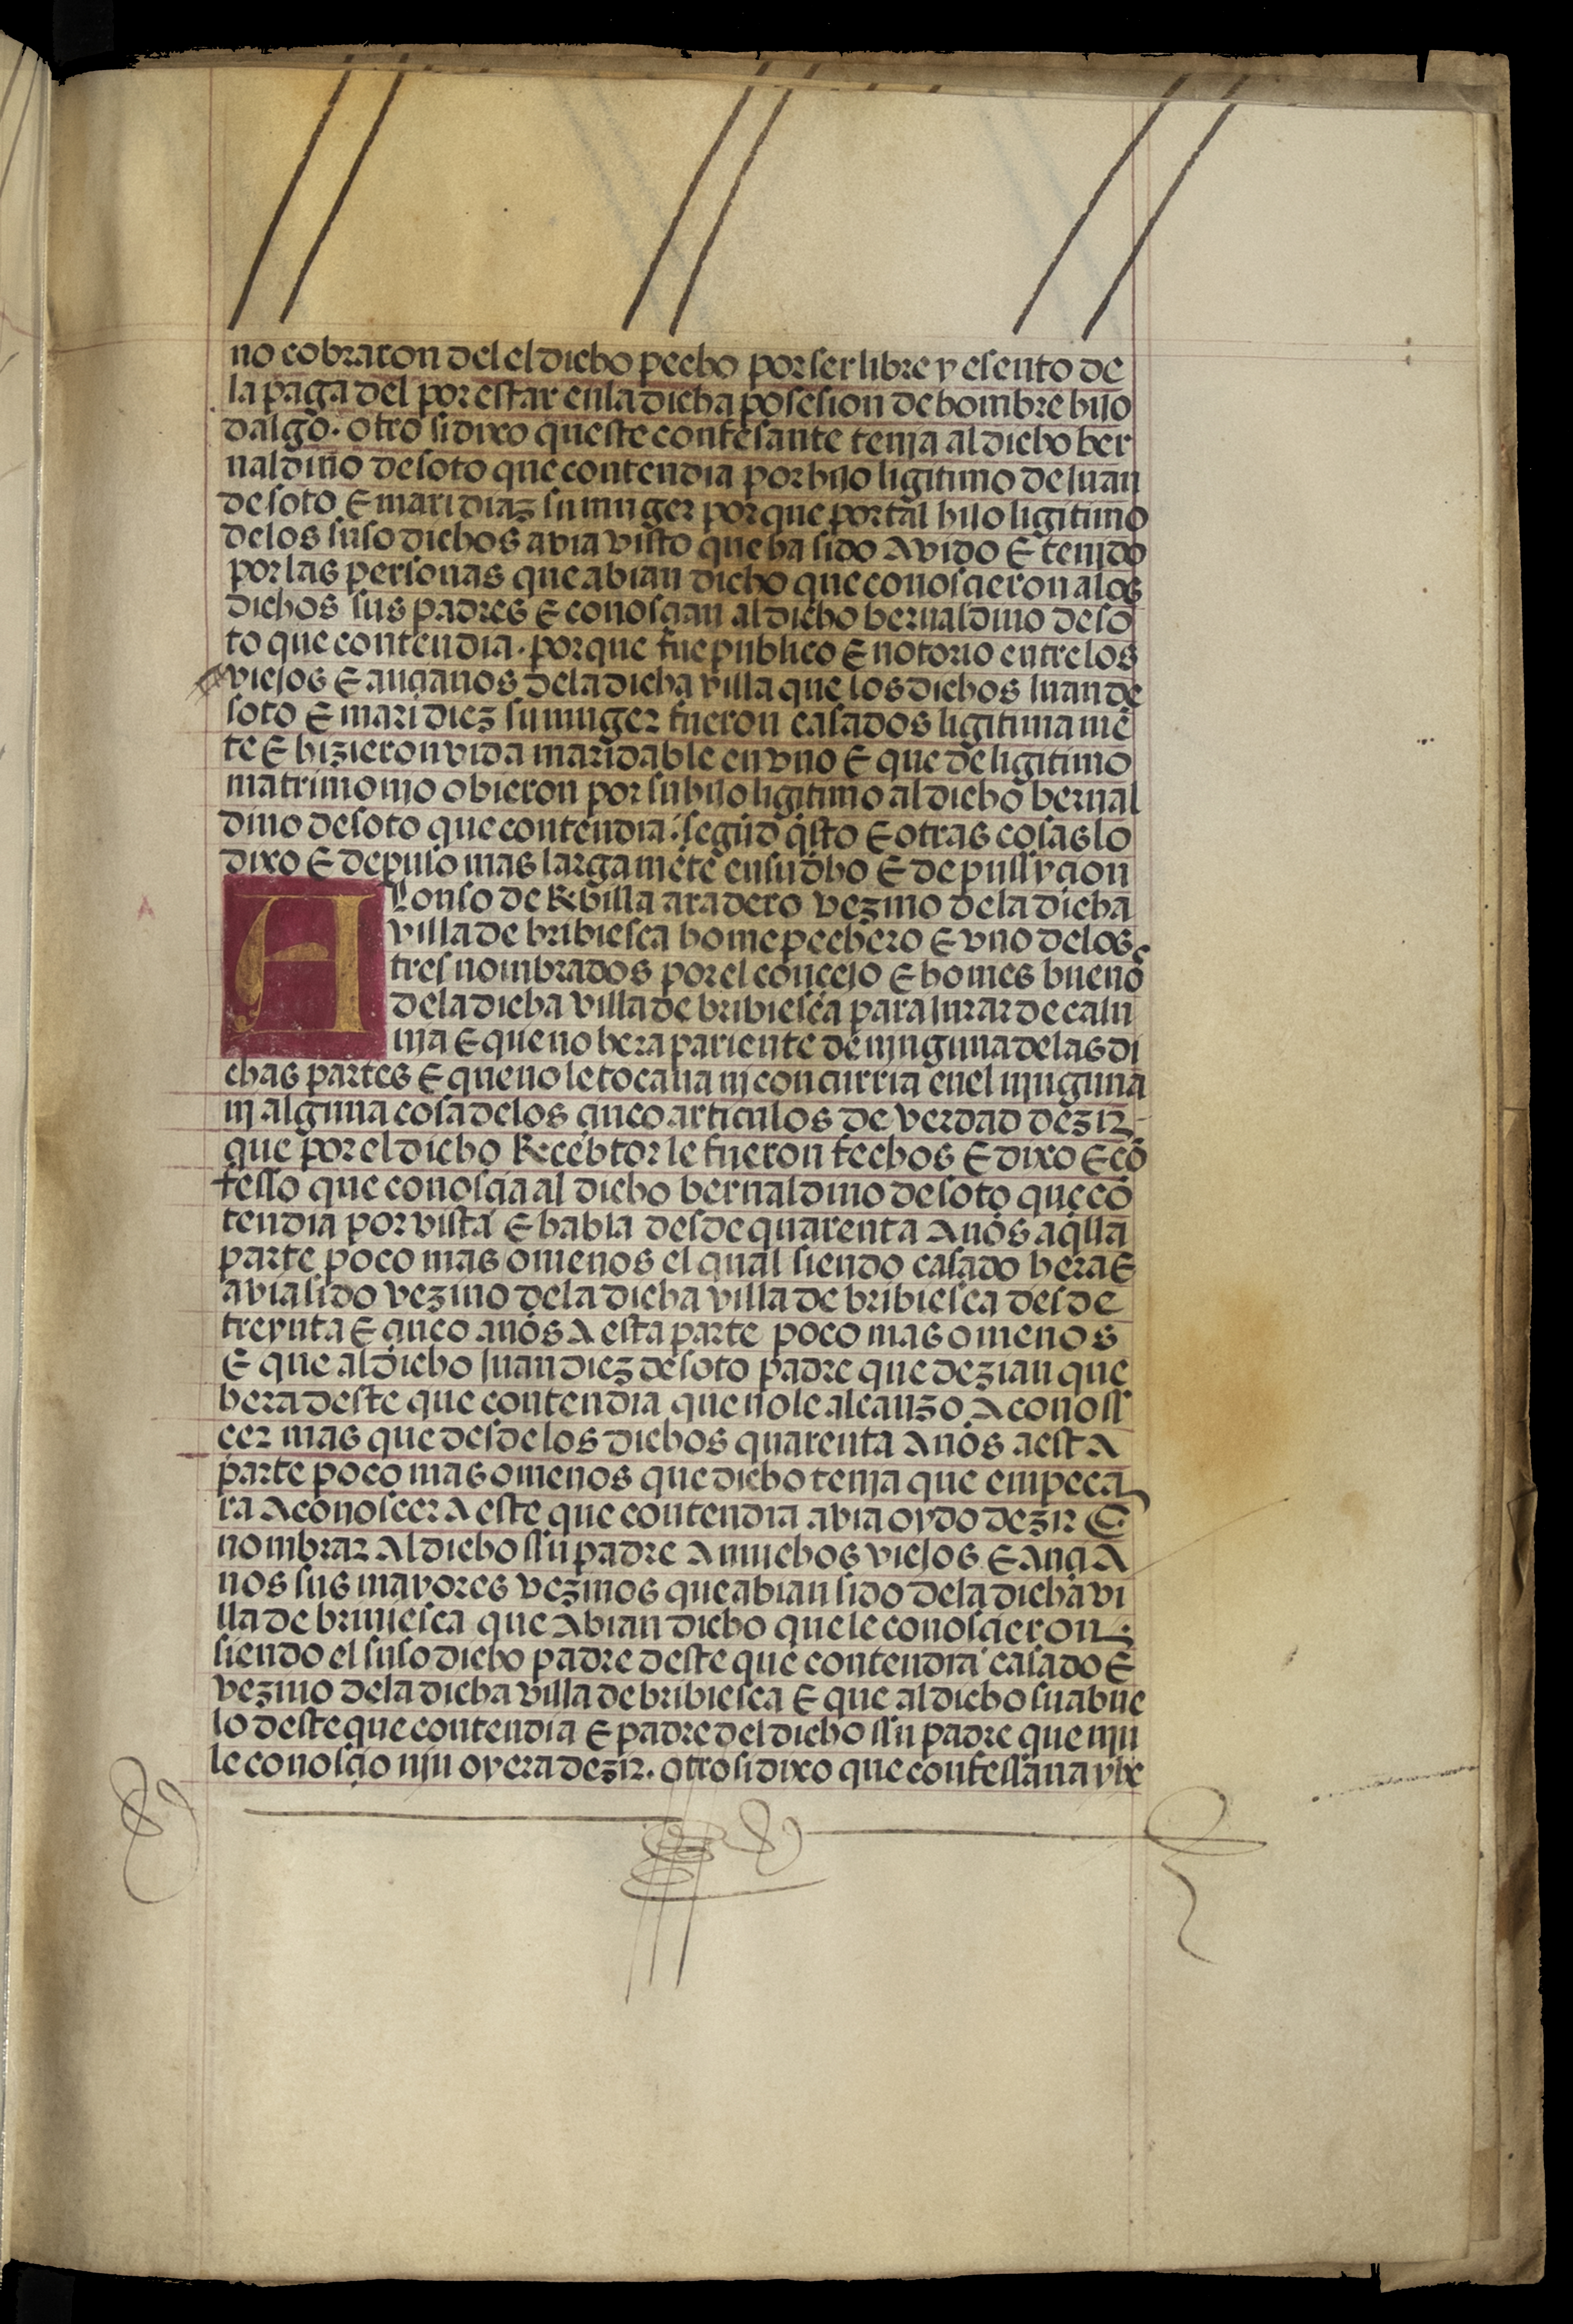 no cobraron del el dicho pecho por ser libre y esento de
la paga del por estar en la dicha posesion de hombre hijo
dalgo. otro si dixo queste confesante tenja al dicho ber
naldino de soto que contendia por hijo ligitimo de juan
de soto E mari diaz su muger porque por tal hijo ligitimo
de los suso dichos avia visto que ha sido avido E tenjdo
por las personas que abian dicho que conoscieron a los
dichos sus padres E conoscian al dicho bernaldino de so
to que contendia. porque fue publico E notorio entre los
viejos E ancianos de la dicha villa que los dichos juan de
soto E mari diez su muger fueron casados ligitimamē
te E hizieron vida maridable en vno E que de ligitimo
matrimonjo obieron por su hijo ligitimo al dicho bernal
dino de soto que contendia. segūd q̄sto E otras cosas lo
dixo E depuso mas largamēte en su dho E depussycion
Alonso de Rebilla aradero vezino de la dicha
villa de bribiesca home pechero E vno de los
tres nombrados por el concejo E homes buenos
de la dicha villa de bribiesca para jurar de calu
nja E que no hera pariente de njnguna de las di
chas partes E que no le tocaua nj concurria en el njnguna
nj alguna cosa de los cinco articulos de verdad dezir
que por el dicho Recebtor le fueron fechos E dixo E cō
fesso que conoscia al dicho bernaldino de soto que cō
tendia por vista E habla desde quarenta años a aq̄lla
parte poco mas o menos el qual siendo casado hera E
avia sido vezino de la dicha villa de bribiesca desde
treynta E cinco años A esta parte poco mas o menos
E que al dicho juan diez de soto padre que dezian que
hera deste que contendia que no le alcanzo A conoss
cer mas que desde los dichos quarenta Años a esta
parte poco mas o menos que dicho tenja que empeca
ra A conoscer A este que contendia avia oydo dezir E
nombrar Al dicho ssu padre A muchos viejos E Ancia
nos sus mayores vezinos que abian sido de la dicha vi
lla de briujesca que Abian dicho que le conoscieron
siendo el suso dicho padre deste que contendia casado E
vezino de la dicha villa de bribiesca E que al dicho su abue
lo deste que contendia E padre del dicho ssu padre que njn
le conoscio njn oyera dezir. otro si dixo que confessaua y be